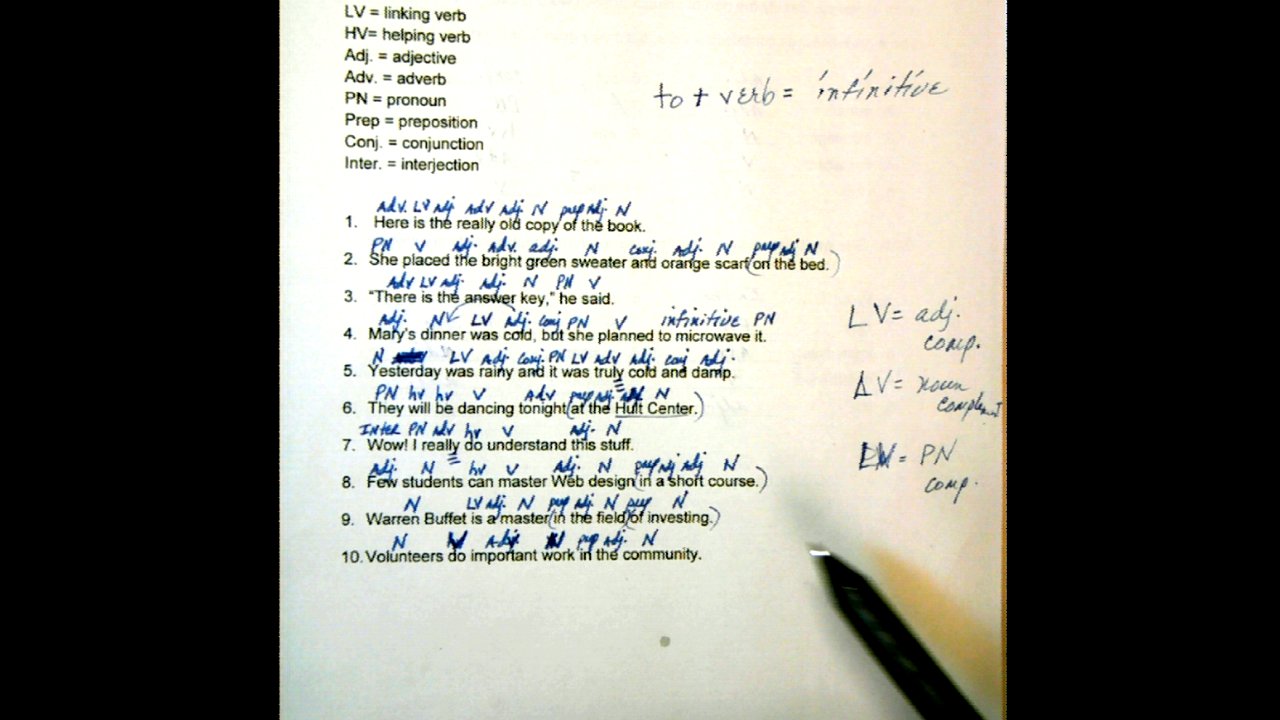 LV = linking verb
HV= helping verb
Adj. = adjective
Adv. = adverb
to + verb = infinitive
PN = pronoun
Prep = preposition
Conj. = conjunction
Inter. = interjection
Adv. LV adj Adv Adj N prep adj N
1. Here is the really old copy of the book.
PN V adj. Adv. adj. N conj. Adj. N prep adj N
2. She placed the bright green sweater and orange scarf (on the bed.)
Adv LV adj. adj. N PN V
3. "There is the answer key," he said.
Adj. N LV Adj. conj PN V infinitive PN
4. Mary's dinner was cold, but she planned to microwave it.
LV = adj. comp.
N LV Adj conj. PN LV adv adj. conj adj.
5. Yesterday was rainy and it was truly cold and damp.
LV = noun
PN hv hv V Adv prep adj N
6. They will be dancing tonight (at the Hult Center.)
INter PN adv hv V adj. N
7. Wow! I really do understand this stuff.
= PN comp.
Adj. N hv V Adj. N prep adj adj N
8. Few students can master Web design (in a short course.)
N LV adj. N prep adj N prep N
9. Warren Buffet is a master (in the field) (of investing.)
N prep adj. N
10. Volunteers do important work in the community.